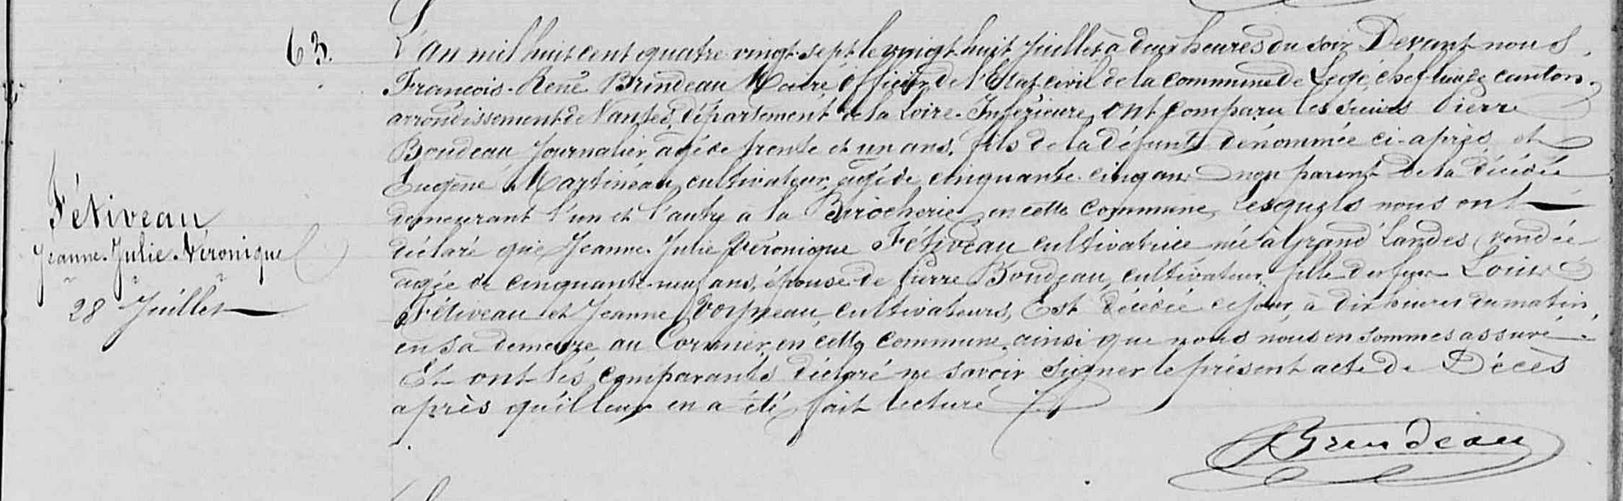 63.
L'an mil huit cent quatre vingt sept le vingt huit juillet à deux heures du soir Devant nous
François René Brindeau Maire officier de l'Etat civil de la commune de Legé, chef lieu de canton,
arrondissement de Nantes, département de la Loire-Inférieure, ont comparu les sieurs Pierre
Boudeau journalier agé de trente et un ans, fils de la défunte dénommée ci-après, et
Eugène Martineau, cultivateur, agé de cinquante cinq ans non parent de la décédée
demeurant l'un et l'autre à la en cette commune, lesquels nous ont
déclaré que Jeanne Julie Véronique Fétiveau cultivatrice née à Grand'Landes, vendée
agée de cinquante neuf ans, épouse de Pierre Boudeau, cultivateur, fille de feu Louis
Fétiveau et Jeanne cultivateurs, Est décédée ce jour, à dix heures du matin,
en sa demeure au en cette commune, ainsi que nous nous en sommes assuré.
Et ont les comparants déclaré ne savoir signer le présent acte de Décès
après qu'il leur en a été fait lecture
Fétiveau
Jeanne Julie Véronique
28 Juillet
Brindeau